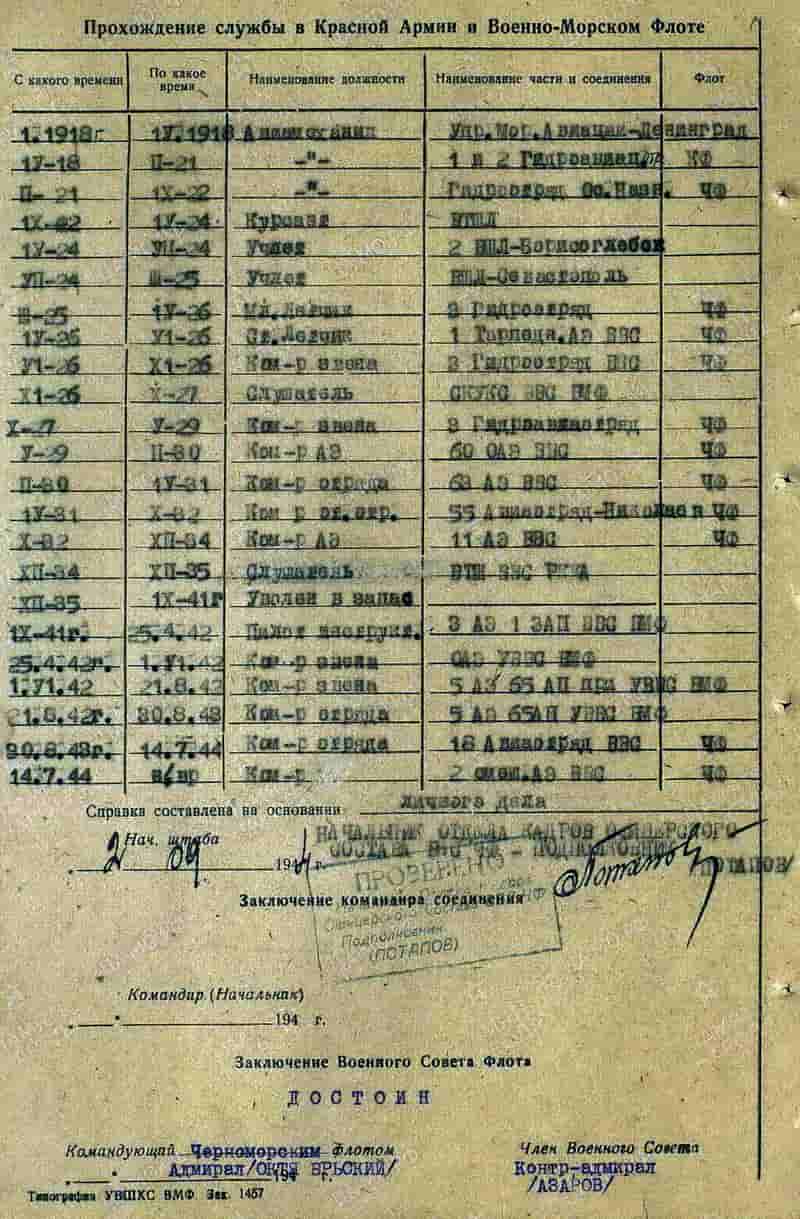 Прохождение службы в Красной Армии и Военно-Морском Флоте
С какого времени По какое время Наименование должности Наименование части и соединения Флот
1.1918г 1У.1918 Авиамеханик Упр.Мор.Авиации-Ленинград
1У-18 П-21 -"- 1 и 2 ЧФ
П-21 1Х-22 -"- Гидроотряд ЧФ
1Х-22 1У-24 Курсант
1У-24 УП-24 Учлет 2 ВШЛ-Борисоглебск
УП-24 Ш-25 Учлет ВШЛ-Севастополь
Ш-25 1У-26 Мл.Летчик 3 Гидроотряд ЧФ
1У-26 У1-26 Ст.Летчик 1 Торпедн.АЭ ВВС ЧФ
У1-26 Х1-26 Ком-р звена 3 Гидроотряд ВВС ЧФ
Х1-26 Х-27 Слушатель СКУКС ВВС ВМФ
Х-27 У-29 Ком-р звена 3 Гидроавиаотряд ЧФ
У-29 П-30 Ком-р АЭ 60 ОАЭ ВВС ЧФ
П-30 1У-31 Ком-р отряда 63 АЭ ВВС ЧФ
1У-31 Х-32 Ком-р от.отр. 55 Авиаотряд-Николаев ЧФ
Х-32 ХП-34 Ком-р АЭ 11 АЭ ВВС ЧФ
ХП-34 ХП-35 Слушатель ВВС РККА
ХП-35 1Х-41г Уволен в запас
1Х-41г. 25.4.42 Пилот инструк. 3 АЭ 1 ЗАП ВВС ВМФ
25.4.42г. 1.У1.42 Ком-р звена ОАЭ УВВС ВМФ
1.У1.42 21.8.42 Ком-р звена 5 АЭ 65 АП при УВВС ВМФ
21.8.42г. 30.8.43 Ком-р отряда 5 АЭ 65АП УВВС ВМФ
30.8.43г. 14.7.44 Ком-р отряда 18 Авиаотряд ВВС ЧФ
14.7.44 н/вр Ком-р 2 смеш.АЭ ВВС ЧФ
Справка составлена на основании личного дела
Нач. штаба НАЧАЛЬНИК ОТДЕЛА КАДРОВ ОФИЦЕРСКОГО
СОСТАВА ВВС ЧФ - ПОДПОЛКОВНИК
2 09 1944 г. Потапов /ПОТАПОВ/
ПРОВЕРЕНО
Заключение командира соединения
Офицерского
Подполковник
(ПОТАПОВ)
Командир (Начальник)
" " 194 г.
Заключение Военного Совета Флота
ДОСТОИН
Командующий Черноморским флотом Член Военного Совета
Адмирал/ОКТЯБРЬСКИЙ/ Контр-адмирал
" " 194 г. /АЗАРОВ/
Типография УВШКС ВМФ. Зак. 1457